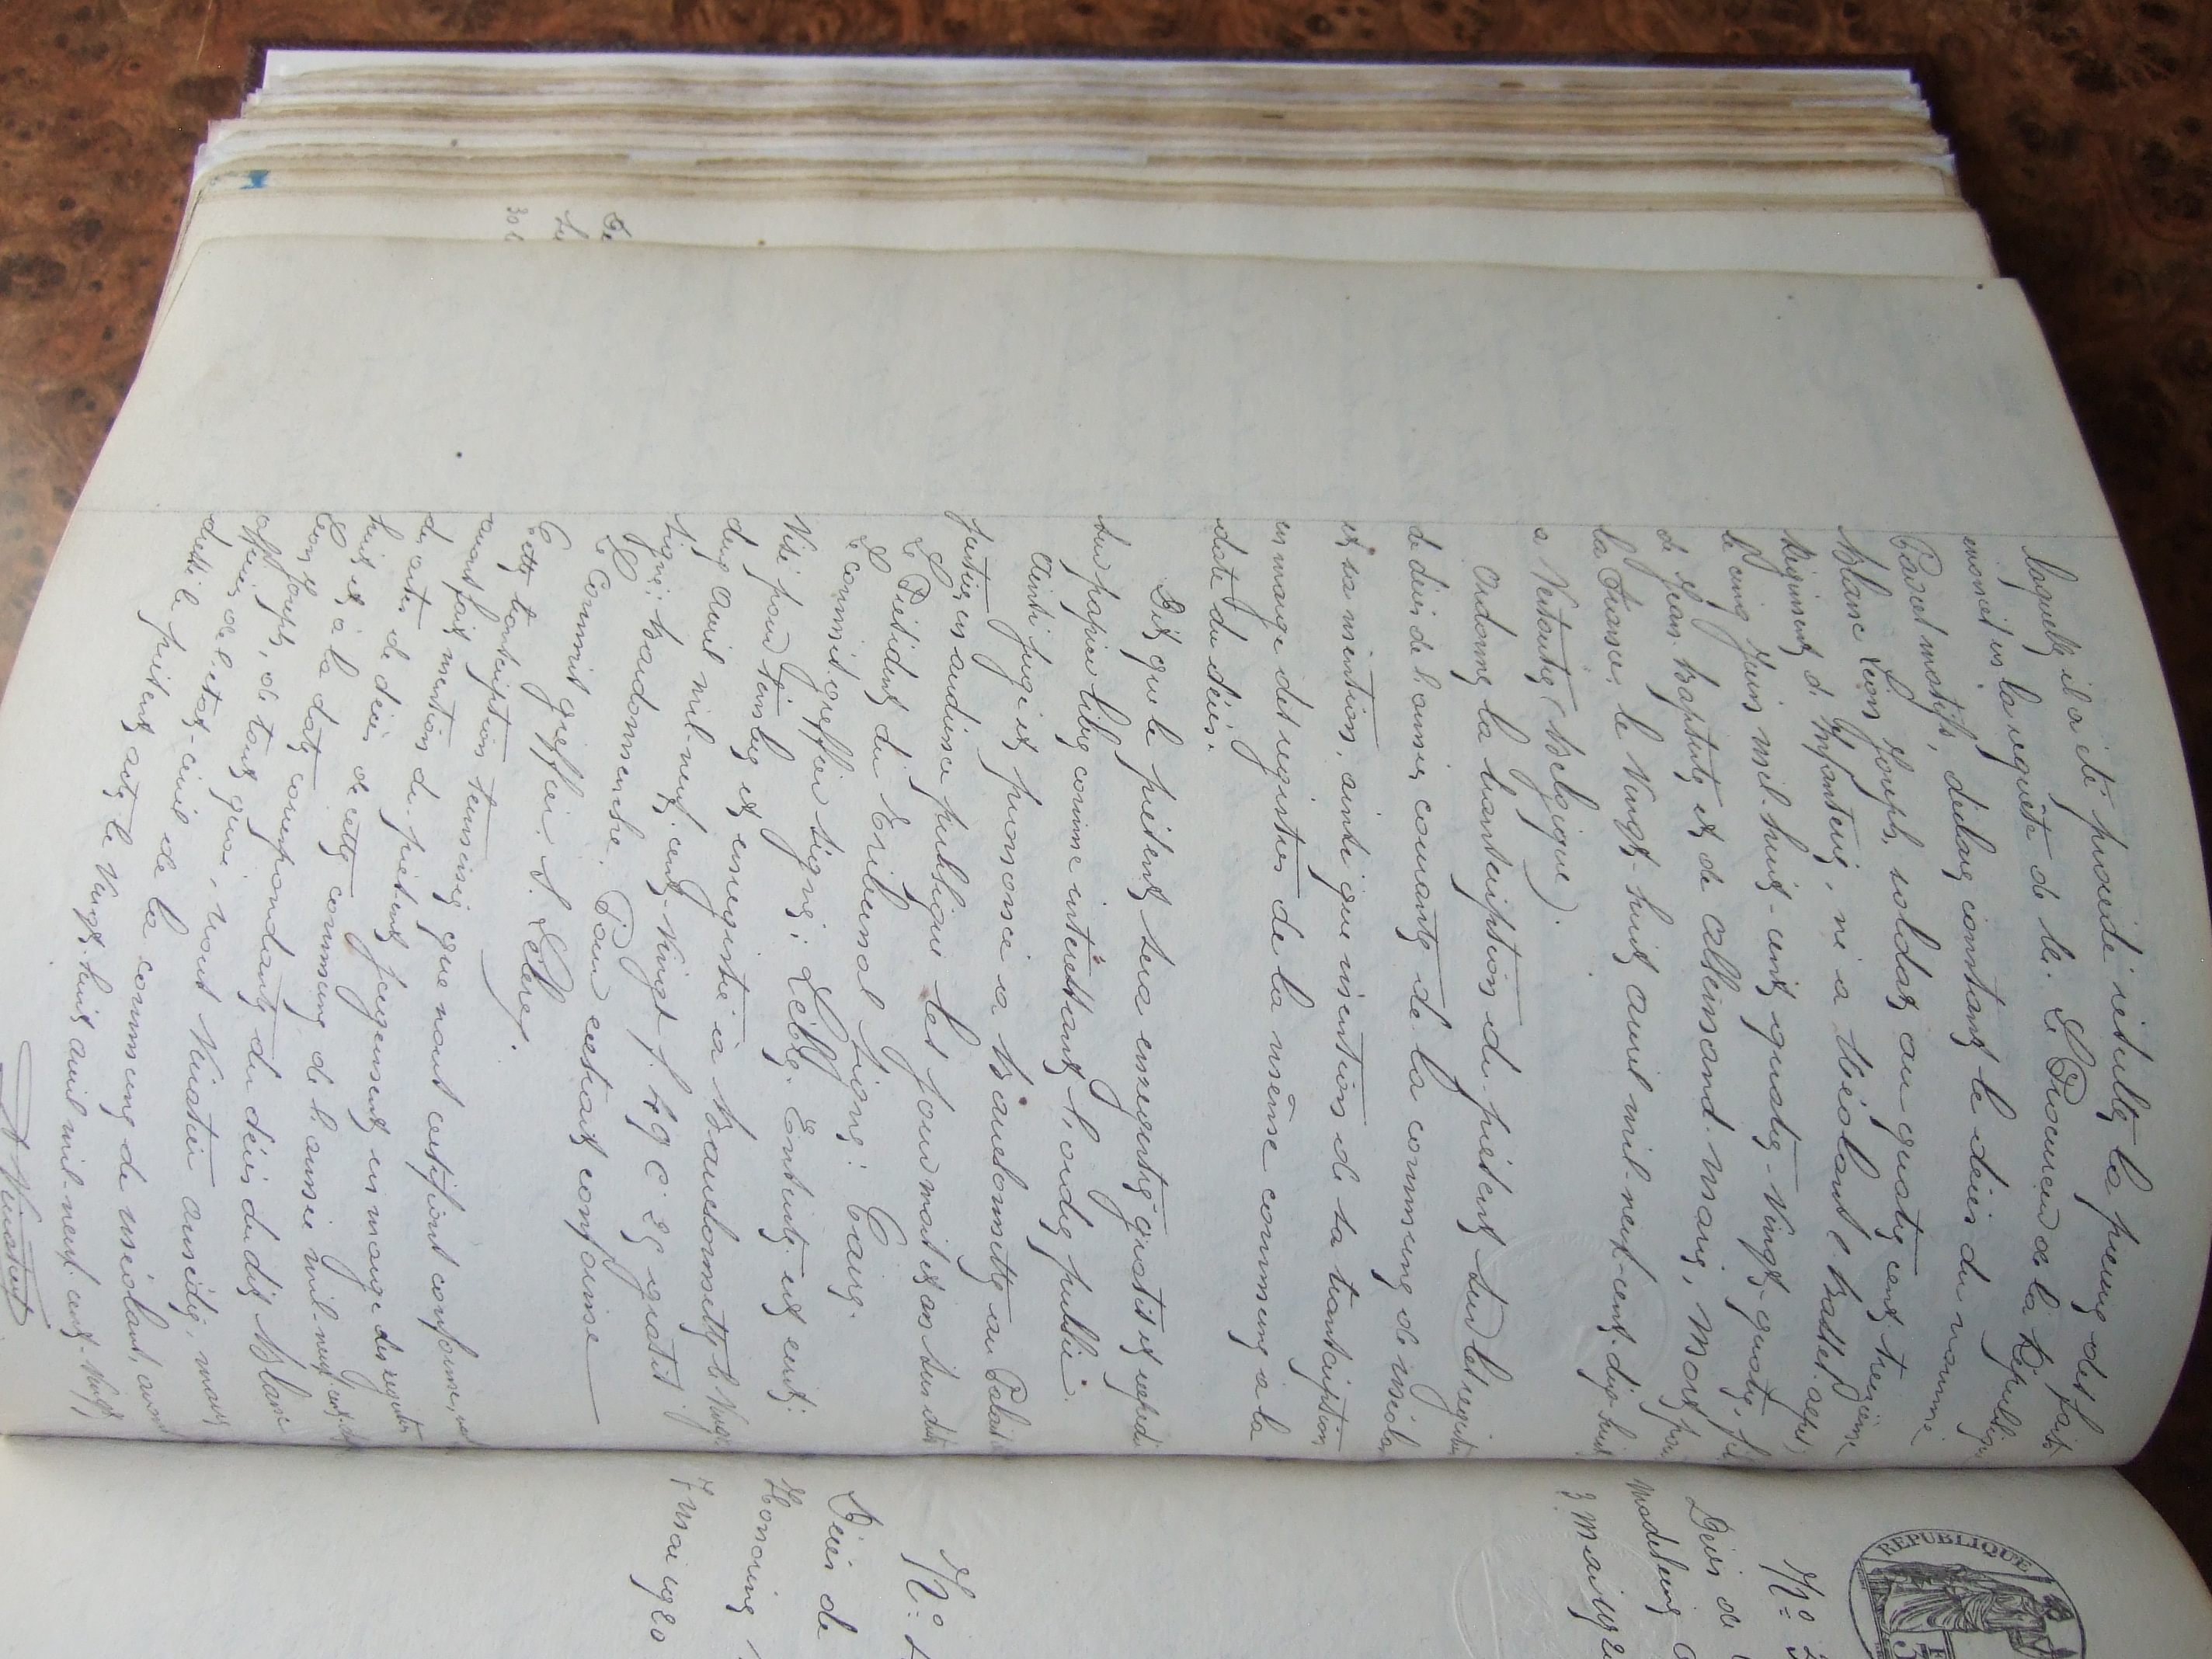 laquelle il a été procédé résulte la preuve des faits
énoncés en la requête de M. le Procureur de la République
Par ces motifs, déclare constant le décès du nommé
Blanc Léon Joseph, soldat au quatre cent treizième
Régiment d'Infanterie, né à Méolans
le cinq Juin mil-huit-cent quatre-vingt-quatre, fils
de Jean Baptiste et de Allemand Marie, Mort pour
la France, le Vingt-huit avril mil-neuf-cent-dix-huit
à (Belgique).
Ordonne la transcription du présent sur les registres
de décès de l'année courante de la commune de Méolans
et sa mention, ainsi que mention de sa transcription
en marge des registres de la même commune à la
date du décès.
Dit que le présent sera enregistré gratis et expédié
sur papier libre comme intéressant l'ordre public.
Ainsi jugé et prononcé à Barcelonnette au Palais de
Justice en audience publique les jour mois et an sus dits
Le Président du Tribunal Signé:
Le commis greffier signé:
Visé pour timbre et enregistré à Barcelonnette le Vingt
deux avril mil neuf cent-vingt f. 49 C. 25 gratis.
Signé: Pour extrait conforme
Le Commis greffier S.
Cette transcription terminée que nous certifions conforme, nous
avons fait mention du présent jugement en marge des registres
de actes de décès de cette commune de l'année mil-neuf cent-dix
huit et à la date correspondante du décès du dit Blanc
Léon Joseph, de tout quoi, nous
officier de l'état-civil de la commune de Méolans, avons
dressé le présent acte le Vingt-huit avril mil-neuf-cent-Vingt
N°
Décès de
Madeleine
3 Mai 1920
N°
Décès de
Honorine
7 Mai 1920
REPUBLIQUE